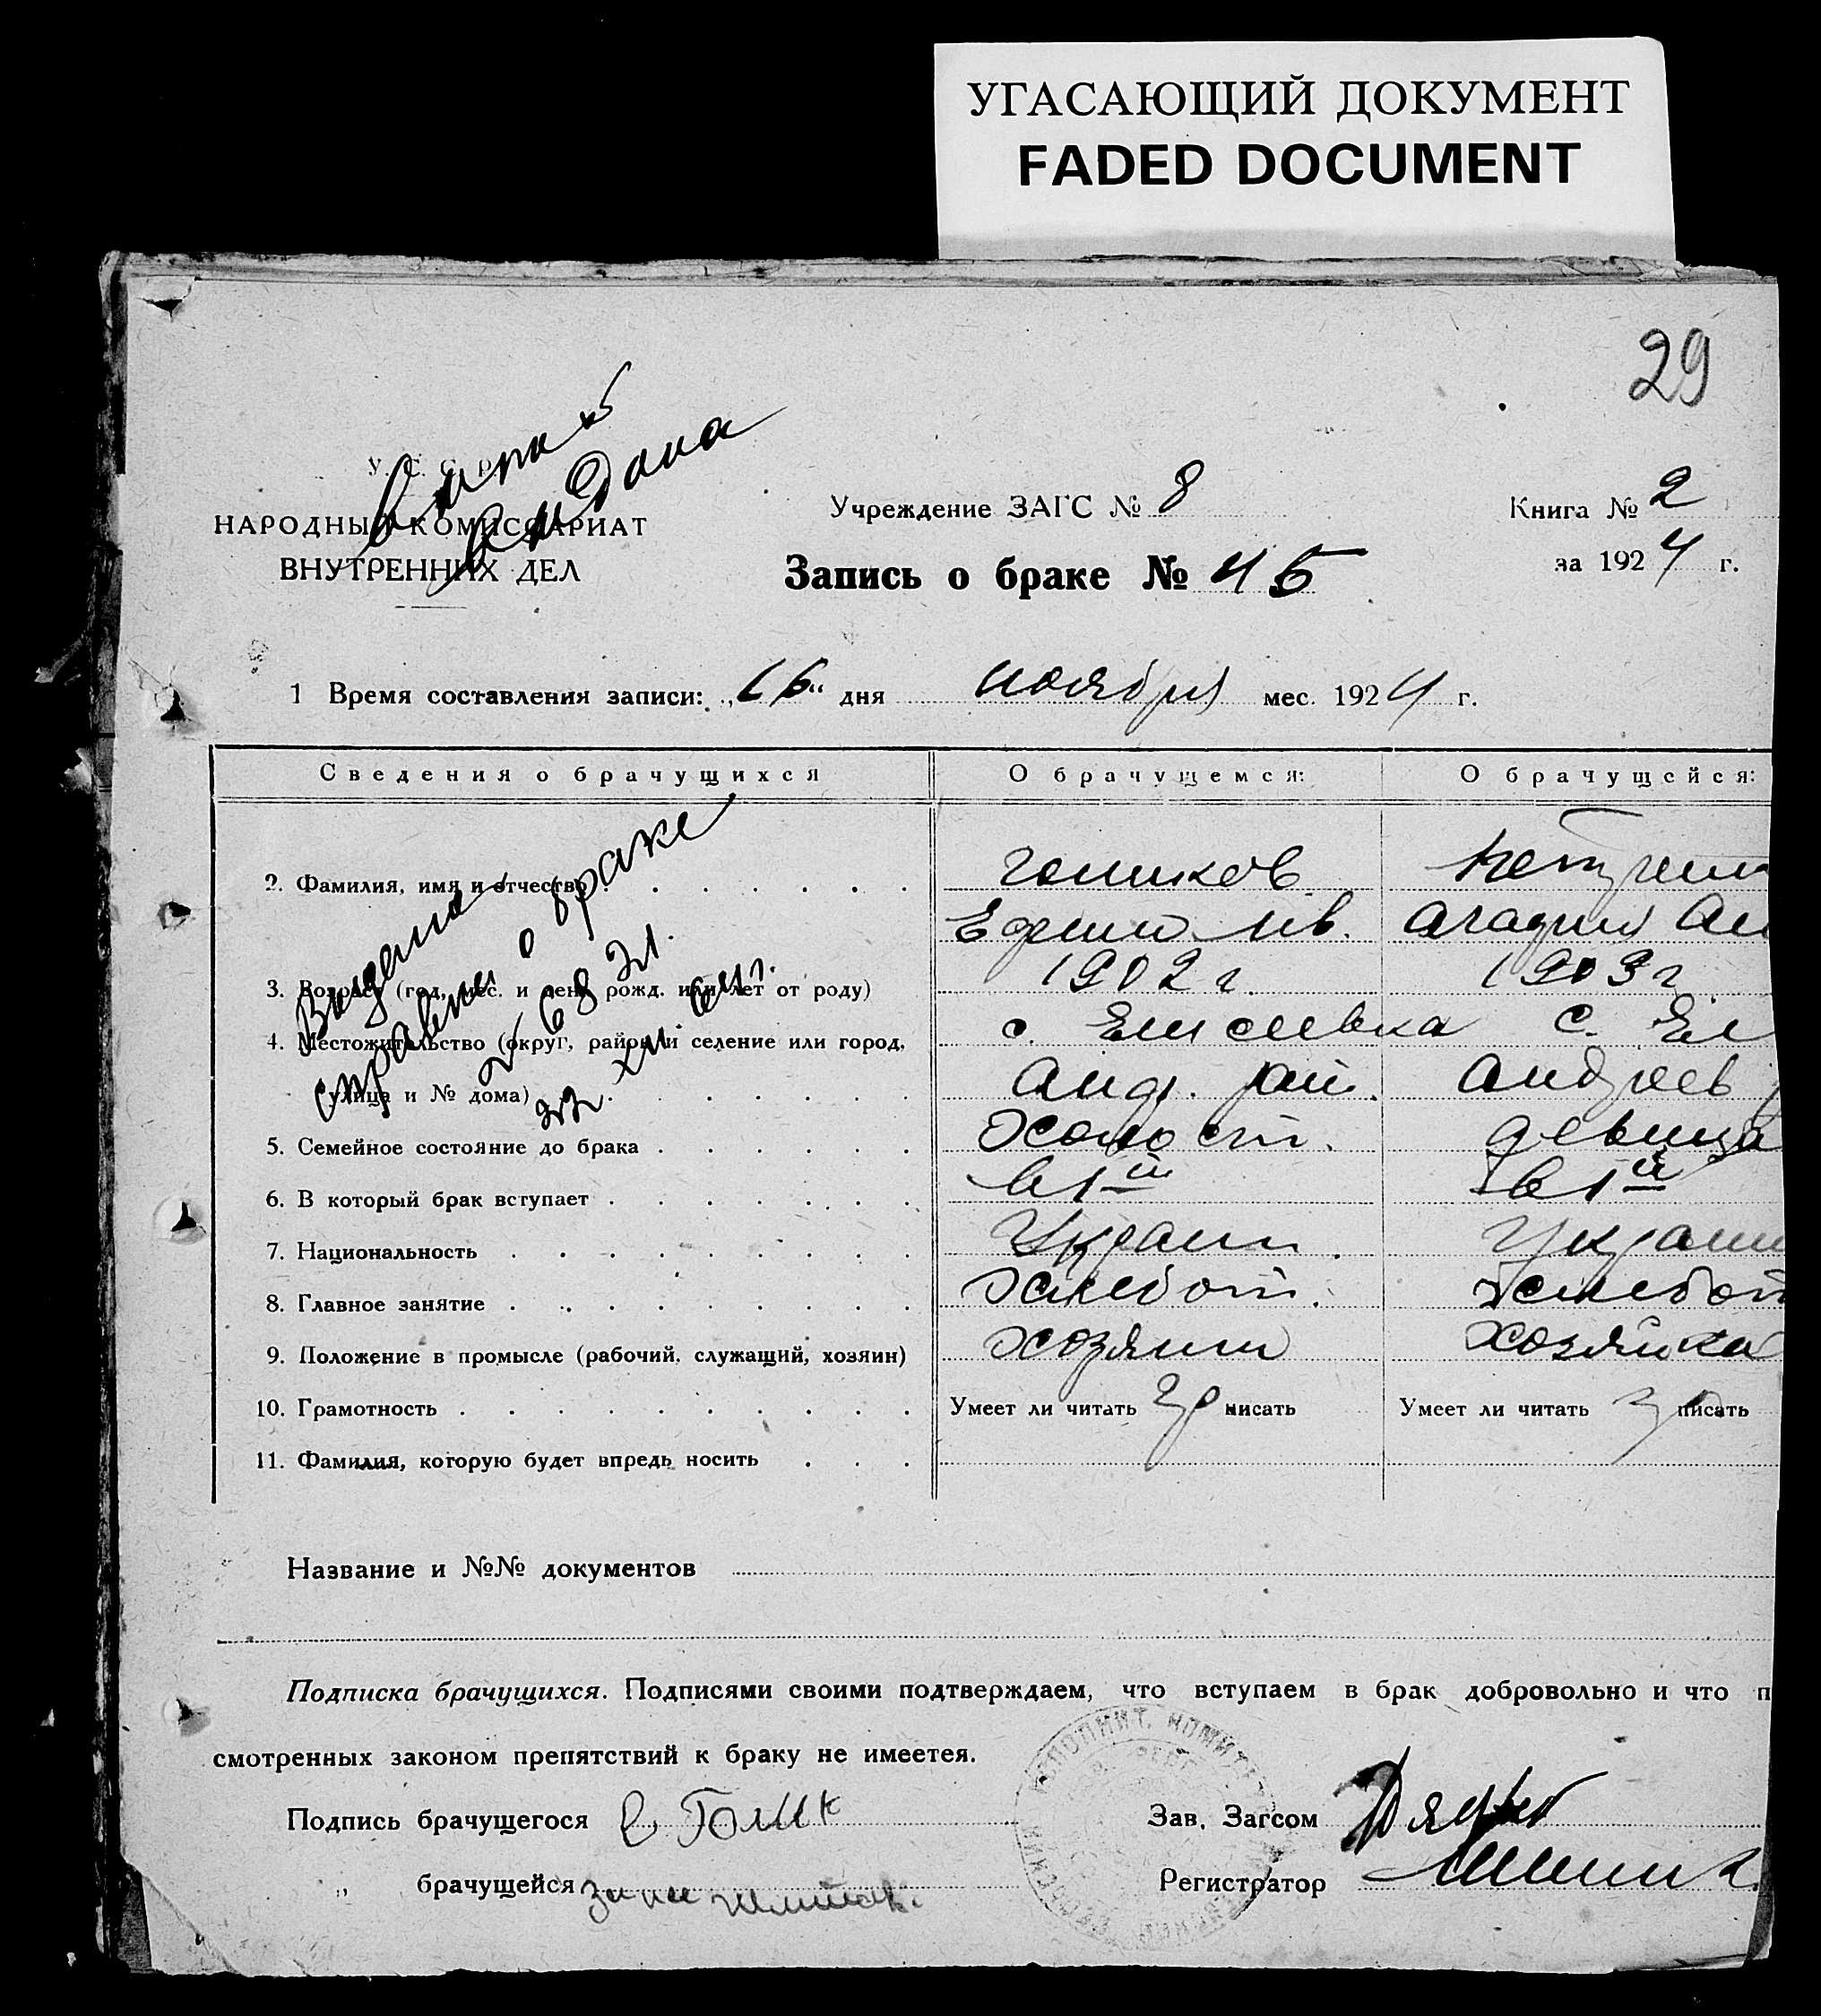 УГАСАЮЩИЙ ДОКУМЕНТ
FADED DOCUMENT
29
У. С. С. Р.
НАРОДНЫЙ КОМИССАРИАТ
ВНУТРЕННИХ ДЕЛ
Выпись
выдана
Учреждение ЗАГС № 8
Книга № 2
за 1924 г.
Запись о браке № 45
1 Время составления записи: „16“ дня ноября мес. 1924 г.
Сведения о брачущихся О брачущемся: О брачущейся:
Выдана
справка о браке
№ 68 эл.
22 XII
2. Фамилия, имя и отчество Голиков
Ефим Ив. Агафия
3. Возраст (год, мес. и день рожд. или лет от роду) 1902 г. 1903 г
4. Местожительство (округ, район и селение или город, с. Елисеевка с. Ел
улица и № дома) Андр. рай. Андреев
5. Семейное состояние до брака холост. девица
6. В который брак вступает в 1й в 1й
7. Национальность Украин. Украин
8. Главное занятие хлебоп. хлебоп
9. Положение в промысле (рабочий, служащий, хозяин) хозяин хозяйка
10. Грамотность Умеет ли читать гр писать Умеет ли читать писать
11. Фамилия, которую будет впредь носить
Название и №№ документов
Подписка брачущихся. Подписями своими подтверждаем, что вступаем в брак добровольно и что п
смотренных законом препятствий к браку не имеется.
Подпись брачущегося Е Голик
Зав. Загсом
„ брачущейся
Регистратор